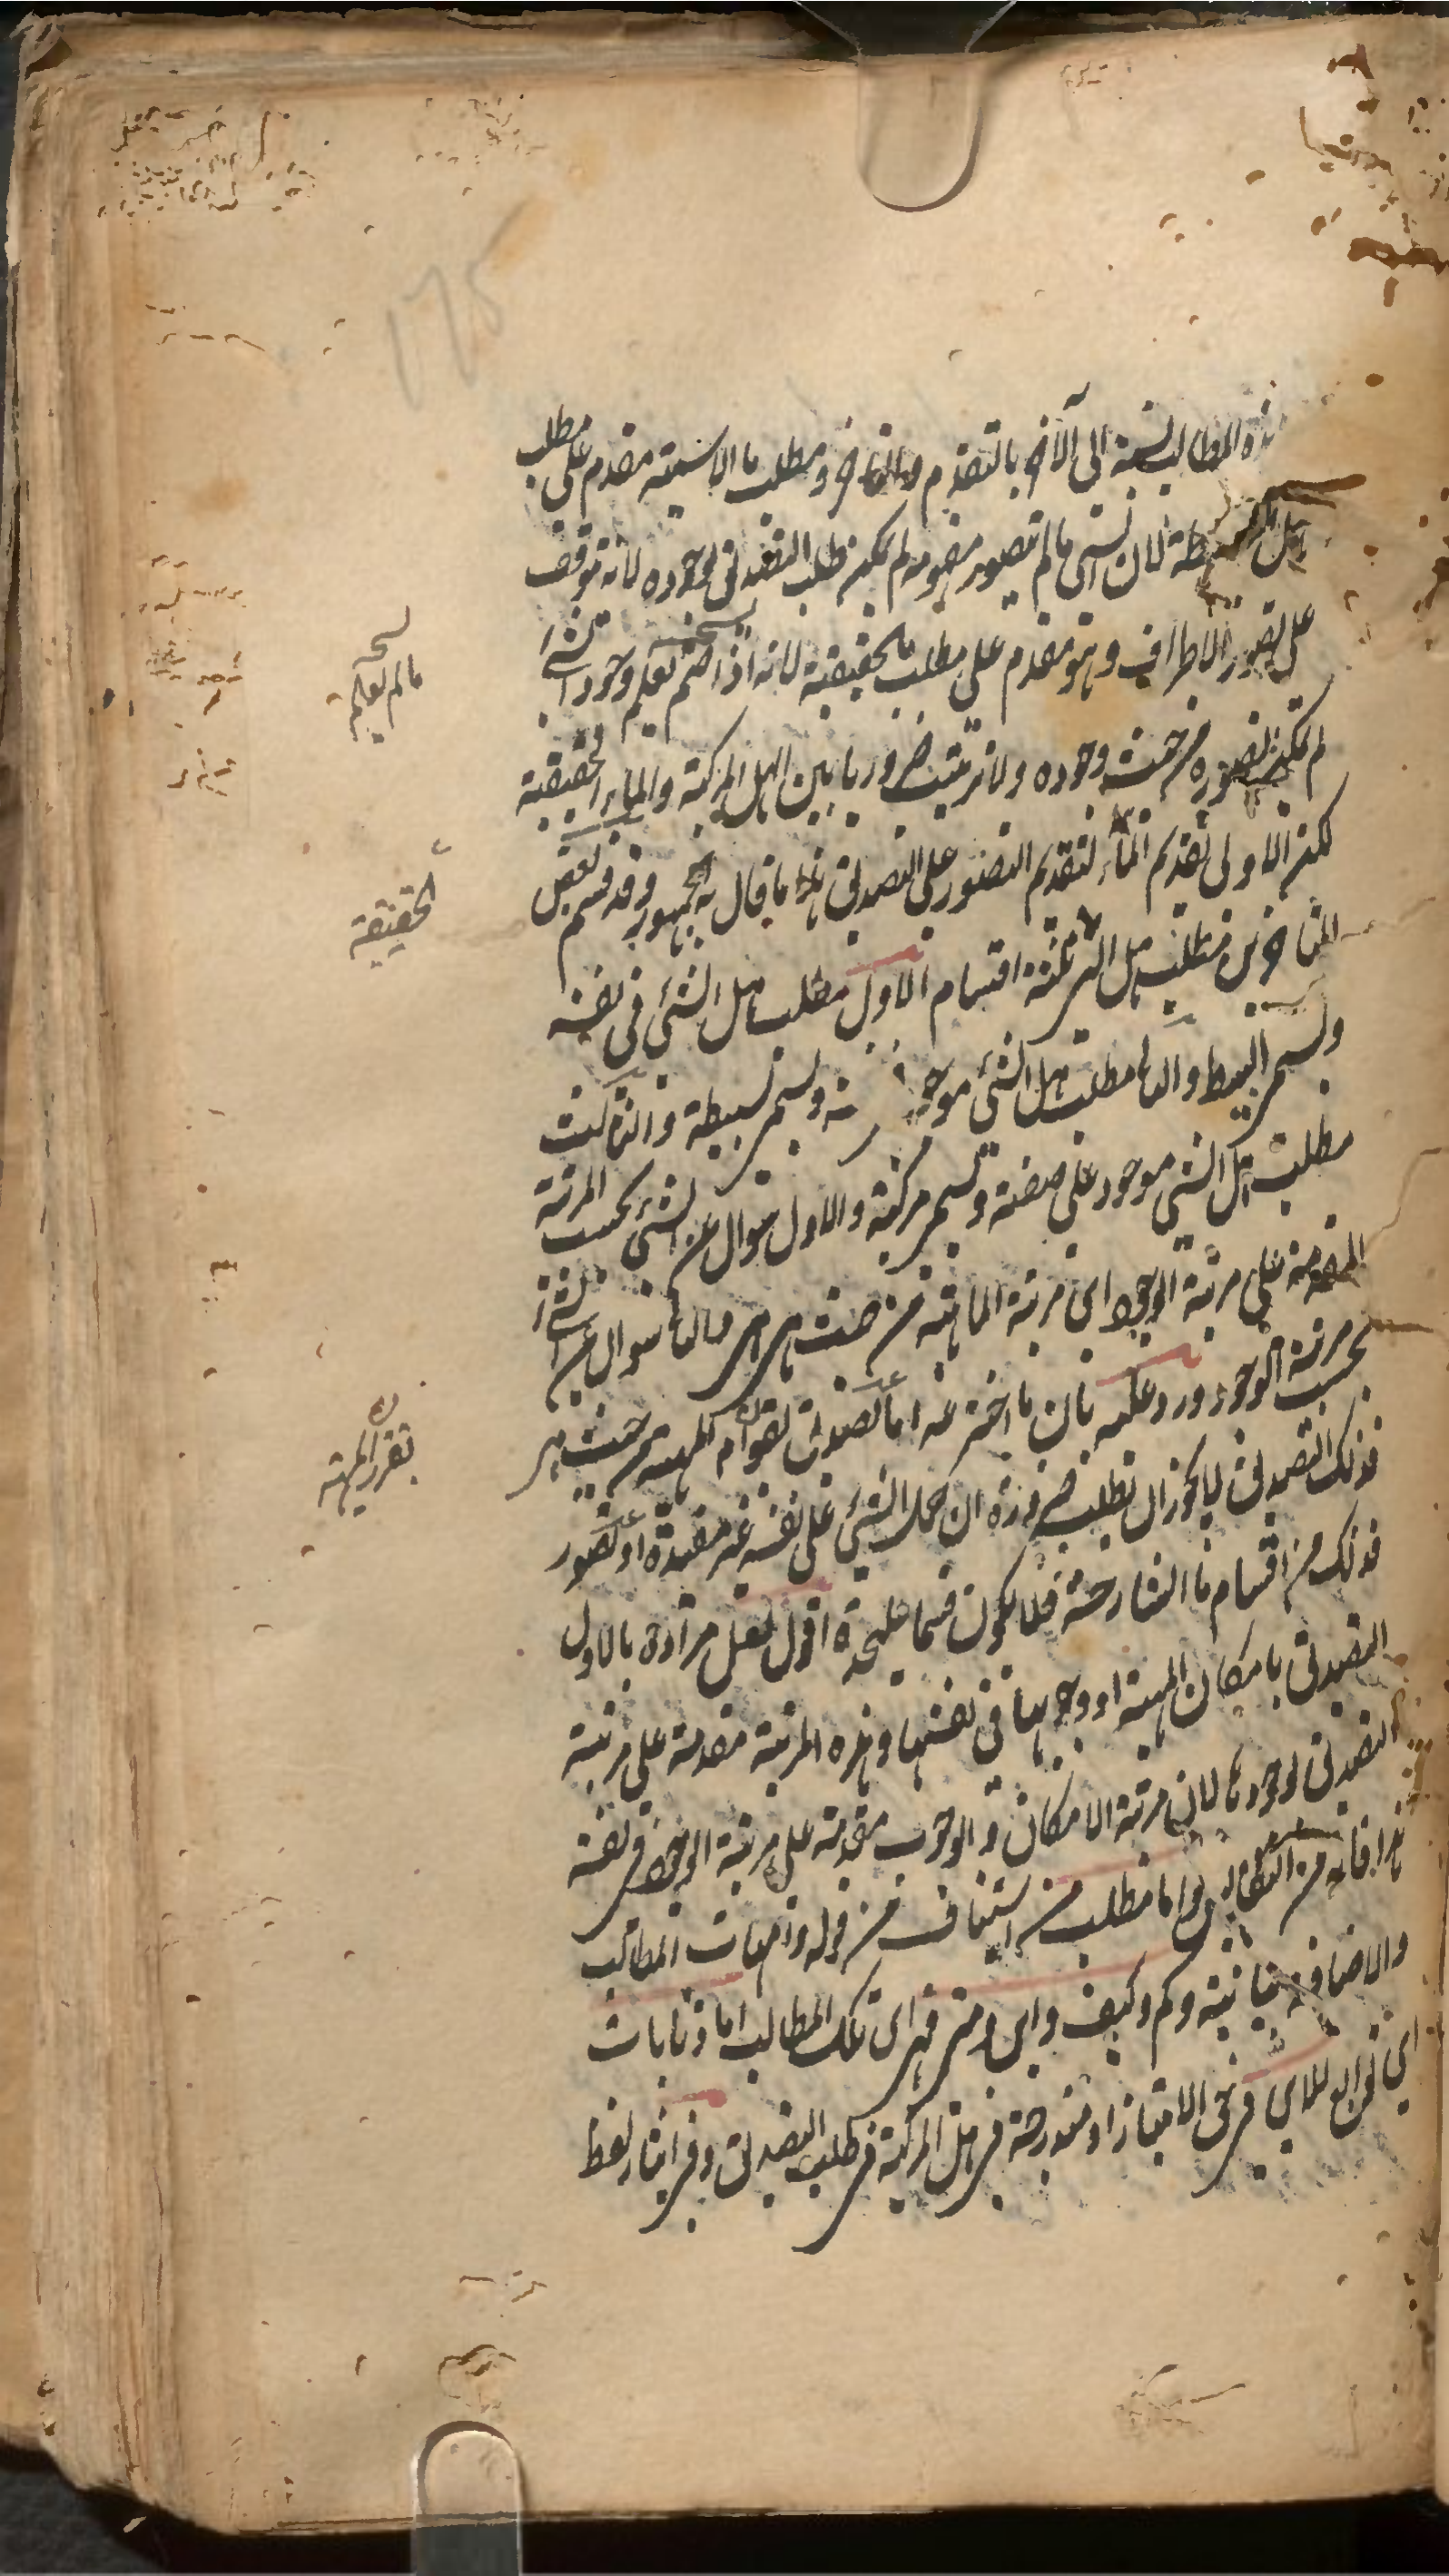 هذه المطالب نسبة الى الآخر بالتقدم والتاخر ومطلب ما الاسمية مقدم على مطلب
هل البسيطة لان الشئ ما لم يتصور مفهومه لم يمكن طلب التصديق بوجوده لانه توقف
على تصور الاطراف وهو مقدم على مطلب ما الحقيقية لانه اذا لم يعلم وجود الشئ
لم يمكن تصوره من حيث وجوده ولا ترتيب ضروريا بين الهل المركبة والماء الحقيقية
لكن الاولى تقديم الماء لتقديم التصور على التصديق هذا ما قال به الجمهور وقد قسم بعض
المتاخرين مطلب هل الى ثلثة اقسام الاول مطلب هل الشئ في نفسه
ويسمى البسيط والثاني مطلب هل الشئ موجود ويسمى بسيطة والثالث
مطلب هل الشئ موجود على صفة ويسمى مركبة والاول سوال عن الشئ بحسب المرتبة
المقدمة على مرتبة الوجود اى مرتبة الماهية من حيث هى هى والثانى سوال عن الشئ
بحسب مرتبة الوجود ورد عليه بان ما اخترعه اما تصديق بقوام المهية من حيث هى
فذلك التصديق لا يجوز ان يطلب ضرورة ان حمل الشئ على نفسه غير مفيدة او تصور
فذلك من اقسام ما الشارحة فلا يكون قسما عليحدة اقول لعل مراده بالاول
التصديق بامكان المهية او وجوبها في نفسها وهذه المرتبة مقدمة على مرتبة
التصديق بوجودها لان مرتبة الامكان والوجوب مقدمة على مرتبة الوجود في نفسه
هذا فانه من واما مطلب من استيناف من قوله وامهات المطالب
والاضافة بيانية وكم وكيف واين ومتى فهى اى تلك المطالب اما ذنابات
اى توابع للاى فى الامتياز او مندرجة فى هل المركبة فى طلب التصديق وفى ايثار لفظ
ما لم يعلم
الحقيقة
تقرر المهية